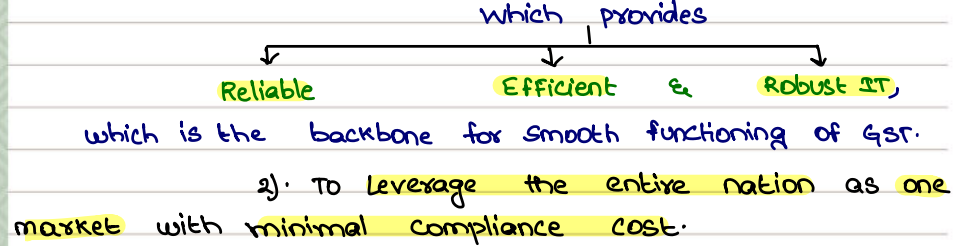 which provides
Reliable Efficient & Robust IT,
which is the backbone for smooth functioning of GST.
2). To leverage the entire nation as one
market with minimal compliance cost.